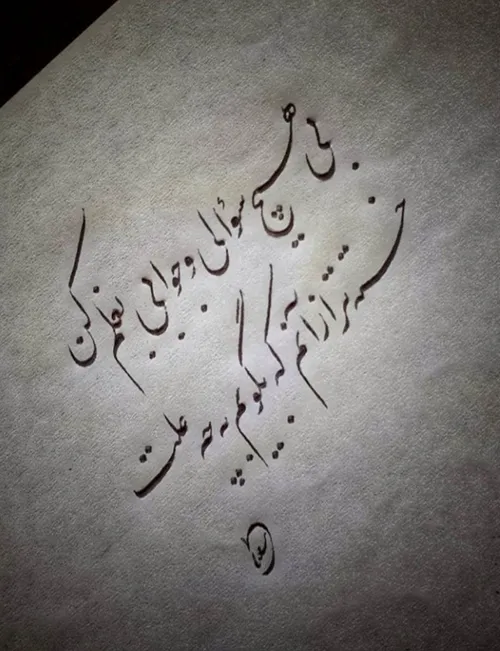 بی هیچ سؤالی و جوابی بغلم کن
خسته تر از آنم که بگویم به چه علت